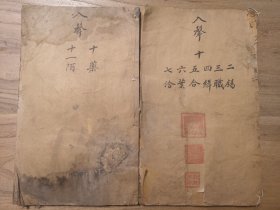 入聲十
二錫
三職
四緝
五合
六葉
七洽
入聲
十藥
十一陌